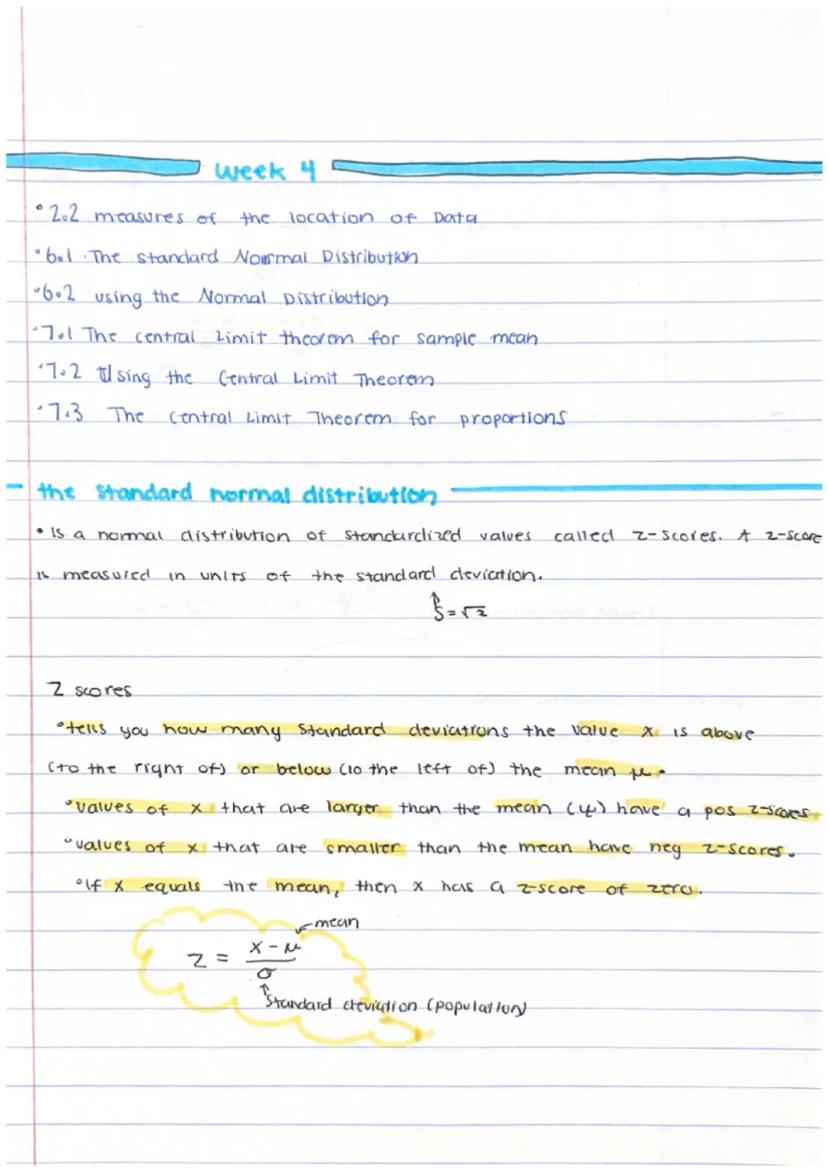 week 4
• 2.2 measures of the location of Data
• 6.1 The standard Normal Distribution
• 6.2 using the Normal Distribution
• 7.1 The central Limit theorem for sample mean
• 7.2 Using the Central Limit Theorem
• 7.3 The Central Limit Theorem for proportions
the standard normal distribution
• Is a normal distribution of standardized values called z-scores. A z-score
is measured in units of the standard deviation.
S=√2
Z scores
• tells you how many standard deviations the value x is above
(to the right of) or below (to the left of) the mean μ.
• values of x that are larger than the mean (μ) have a pos z-scores.
• values of x that are smaller than the mean have neg z-scores.
• If x equals the mean, then x has a z-score of zero.
mean
z = x - μ / σ
standard deviation (population)